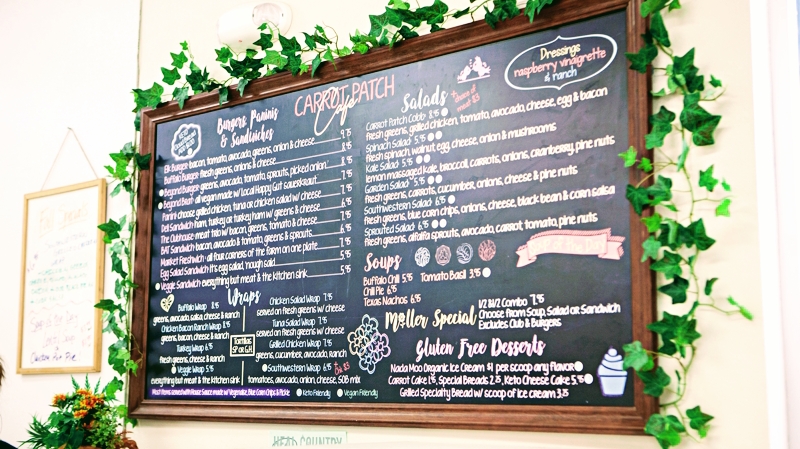 CARROT PATCH
Cafe
Burgers, Paninis
& Sandwiches
Elk Burger- bacon, tomato, avocado, greens, onion & cheese 9.75
Buffalo Burger- fresh greens, onions & cheese 8.95
Beyond Burger- greens, avocado, tomato, sprouts, picked onion
Beyond Brush- all vegan made w/ Local Happy Gut sauerkraut
Panini- choose grilled chicken, tuna or chicken salad w/ cheese
Deli Sandwich- ham, turkey or turkey ham w/ greens & cheese
The Clubhouse- meat trio w/ bacon, greens, tomato & cheese
BAT Sandwich- bacon, avocado & tomato, greens & sprouts
Market Freshwich- all four corners of the farm on one plate
Egg Salad Sandwich- it's egg salad, 'nough said 5.95
Veggie Sandwich- everything but meat & the kitchen sink 5.95
Wraps
Buffalo Wrap 8.95
greens, avocado, salsa, cheese & ranch
Chicken Bacon Ranch Wrap 8.95
greens, cheese & ranch
Turkey Wrap 6.95
fresh greens, cheese & ranch
Veggie Wrap 5.95
everything but meat & the kitchen sink
Tortillas
SP or GH
Chicken Salad Wrap 7.95
served on fresh greens w/ cheese
Tuna Salad Wrap 7.95
served on fresh greens w/ cheese
Grilled Chicken Wrap 7.95
greens, cucumber, avocado, ranch
Southwestern Wrap 6.95
tomatoes, avocado, onion, cheese, SOB mix
Most items served w/ House Sauce made w/ Vegenaise, Blue Corn Chips & Pickle
Keto Friendly
Vegan Friendly
Salads
choice of
meat $3
Dressings
raspberry vinaigrette
& ranch
Carrot Patch Cobb 8.95
Fresh greens, grilled chicken, tomato, avocado, cheese, egg & bacon
Spinach Salad 5.95
Fresh spinach, walnut, egg, cheese, onion & mushrooms
Kale Salad 5.95
lemon massaged kale, broccoli, carrots, onions, cranberry, pine nuts
Garden Salad 5.95
fresh greens, carrots, cucumber, onions, cheese & pine nuts
Southwestern Salad 6.95
fresh greens, blue corn chips, onions, cheese, black bean & corn salsa
Sprouted Salad 6.95
fresh greens, alfalfa sprouts, avocado, carrot, tomato, pine nuts
Soups
Buffalo Chili 5.95 Tomato Basil 3.95
Chili Pie 6.95
Texas Nachos 6.95
Moller Special
1/2 & 1/2 Combo 7.95
Choose From Soup, Salad or Sandwich
Excludes Club & Burgers
Gluten Free Desserts
Nada Moo Organic Ice Cream $1 per scoop any flavor
Carrot Cake 1.95, Special Breads 2.25, Keto Cheese Cake 5.95
Grilled Specialty Bread w/ scoop of ice cream 3.25
HEAD COUNTRY